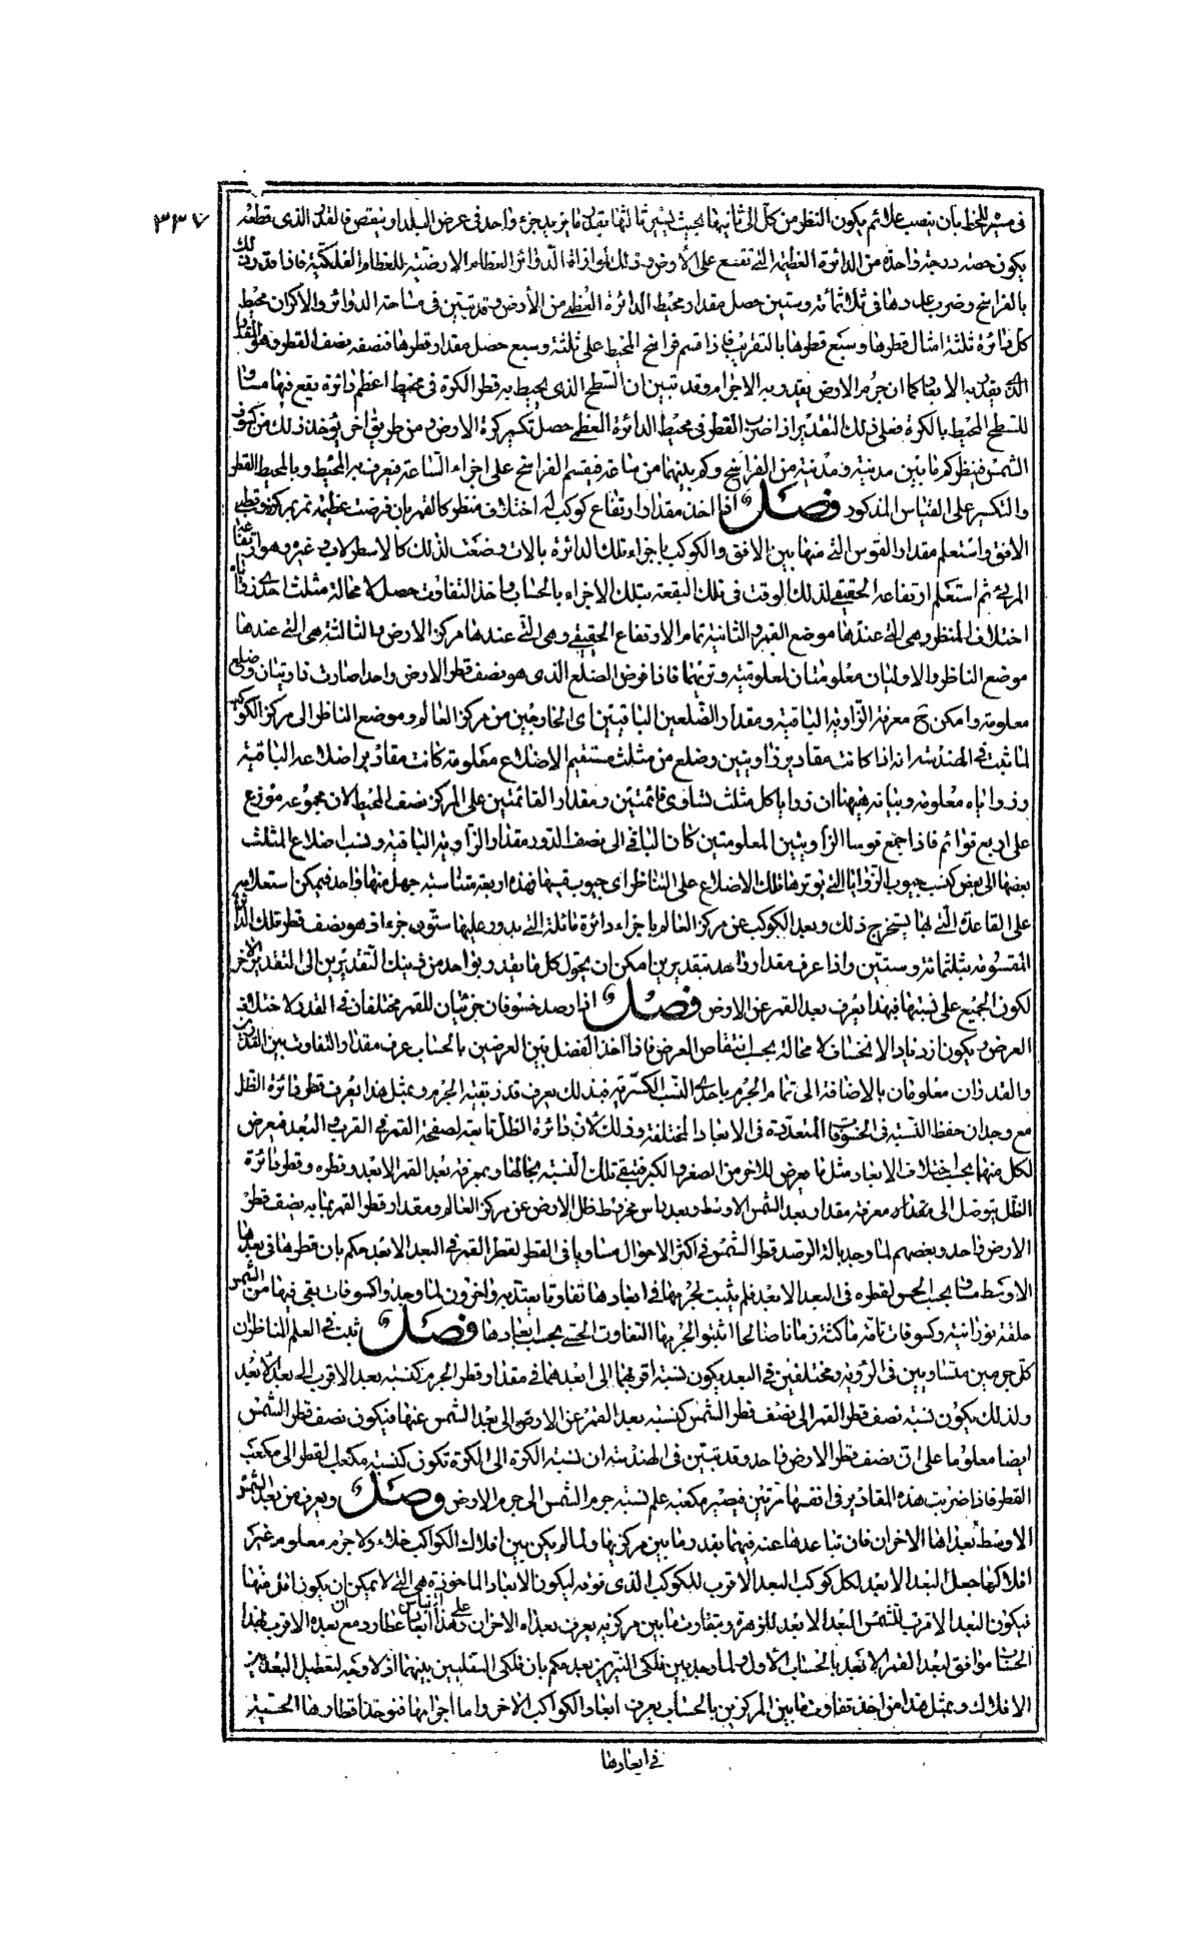 ٣٣٧
في مسير الخط بان ينصب علائم يكون النظر من كل الى ثانيتها بحيث يستر ثالثها بقدر ما يزيد جزء واحد في عرض البلد او ينقص فالقدر الذي قطعه
يكون حصته درجة واحدة من الدائرة العظيمة التي تقع على الأرض وذلك لموازاة الدوائر العظام الارضية للعظام الفلكية فاذا قدر ذلك
بالفراسخ وضرب عددها في ثلثمائة وستين حصل مقدار محيط الدائرة العظمى من الأرض وقد تبين في مساحة الدوائر والاكران محيط
كل دائرة ثلثة امثال قطرها وسبع قطرها بالتقريب فاذا قسم فراسخ المحيط على ثلثة وسبع حصل مقدار قطرها فنصفه نصف القطر وهو القدر
الذي يقدر به الابعاد كما ان جرم الارض يقدر به الاجرام وقد تبين ان السطح الذي يحيط به قطر الكرة في محيط اعظم دائرة يقع فيها مساو
للسطح المحيط بالكرة فعلى ذلك التقدير اذا ضرب القطر في محيط الدائرة العظمى حصل تكسير كرة الارض ومن طريق اخر يؤخذ ذلك من كسوف
الشمس فينظر كم ما بين مدينة ومدينة من الفراسخ وكم بينهما من ساعة فيقسم الفراسخ على اجزاء الساعة فيعرف به المحيط وبالمحيط القطر
والتكسير على القياس المذكور فصل اذا اخذ مقدار ارتفاع كوكب له اختلاف منظر كالقمر بان فرضت عظيمة تمر بمركزه وقطبي
الافق واستعلم مقدار القوس التي منها بين الافق والكوكب باجزاء تلك الدائرة بالات وضعت لذلك كالاسطرلاب وغيره وهو ارتفاعه
المرئي ثم استعلم ارتفاعه الحقيقي لذلك الوقت في تلك البقعة بتلك الاجزاء بالحساب واخذ التفاوت حصل لا محالة مثلث احدى زواياه
اختلاف المنظر وهي التي عندها موضع القمر والثانية تمام الارتفاع الحقيقي وهي التي عندها مركز الارض والثالثة هي التي عندها
موضع الناظر والاوليان معلومتان لمعلومية وتريهما فاذا فرض الضلع الذي هو نصف قطر الارض واحدا صارت زاويتان وضلع
معلومة وامكن ح معرفة الزاوية الباقية ومقدار الضلعين الباقيين اي الخارجين من مركز العالم وموضع الناظر الى مركز الكوكب
لما ثبت في الهندسة انه اذا كانت مقادير زاويتين وضلع من مثلث مستقيم الاضلاع معلومة كانت مقادير اضلاعه الباقية
وزواياه معلومة وبيانه هيهنا ان زوايا كل مثلث تساوي قائمتين ومقدار القائمتين على المركز نصف المحيط لان مجموعه موزع
على اربع قوائم فاذا جمع قوسا الزاويتين المعلومتين كان الباقي الى نصف الدور مقدار الزاوية الباقية ونسب اضلاع المثلث
بعضها الى بعض كنسب جيوب الزوايا التي يوترها تلك الاضلاع على التناظر اي جيوب قسيها فهذه اربعة متناسبة جهل منها واحد فيمكن استعلامه
على القاعدة التي بها يستخرج ذلك وبعد الكوكب عن مركز العالم باجزاء دائرة مائلة التي يدور عليها ستون جزء اذ هو نصف قطر تلك الدائرة
المقسومة بثلثمائة وستين واذا عرف مقدار واحد بتقديرين امكن ان يحول كل ما يقدر بواحد من ذينك التقديرين الى التقدير الاخر
لكون الجميع على نسبتها فبهذا يعرف بعد القمر عن الارض فصل اذا رصد خسوفان جزئيان للقمر مختلفان في القدر لاختلاف
العرض ويكون ازدياد الانخساف لا محالة بحسب انتقاص العرض فاذا اخذ الفضل بين العرضين بالحساب عرف مقدار التفاوت بين القدرين
والقدران معلومان بالاضافة الى تمام الجرم باحدى النسب الكسرية فبذلك يعرف قدر بقية الجرم وبمثل هذا يعرف قطر دائرة الظل
مع وجدان حفظ النسبة في الخسوفات المتعددة في الابعاد المختلفة وذلك لان دائرة الظل تابعة لصفحة القمر في القرب والبعد فيعرض
لكل منهما بحسب اختلاف الابعاد مثل ما يعرض للاخر من الصغر والكبر فتبقى تلك النسبة بحالها وبمعرفة بعد القمر الابعد وقطره وقطر دائرة
الظل يتوصل الى معرفة مقدار بعد الشمس الاوسط وبعد راس مخروط ظل الارض عن مركز العالم ومقدار قطر القمر بما به نصف قطر
الارض واحد وبعضهم لما وجد بالة الرصد قطر الشمس في اكثر الاحوال مساويا في القطر لقطر القمر في البعد الابعد حكم بان قطرها في بعدها
الاوسط مساو بحسب الحس لقطره في البعد الابعد فلم يثبت لجرمها في ابعادها تفاوتا يعتد به واخرون لما وجدوا كسوفات بقى فيها من الشمس
حلقة نورانية وكسوفات تامة ماكثة زمانا صالحا اثبتوا لجرمها التفاوت الحسي بحسب ابعادها فصل ثبت في العلم المناظر ان
كل جرمين متساويين في الرؤية ومختلفين في البعد يكون نسبة اقربهما الى ابعدهما في مقدار قطر الجرم كنسبة بعد الاقرب الى بعد الابعد
ولذلك يكون نسبة نصف قطر القمر الى نصف قطر الشمس كنسبة بعد القمر عن الارض الى بعد الشمس عنها فيكون نصف قطر الشمس
ايضا معلوما على ان نصف قطر الارض واحد وقد تبين في الهندسة ان نسبة الكرة الى الكرة تكون كنسبة مكعب القطر الى مكعب
القطر فاذا ضربت هذه المقادير في انفسها مرتين فيصير مكعبة علم نسبة جرم الشمس الى جرم الارض وصل ويعرف من بعد الشمس
الاوسط بعداها الاخران فان تباعدها عنه فيهما بقدر ما بين مركزيها ولما لم يكن بين افلاك الكواكب خلاء ولا جرم معلوم غير
افلاكها جعل البعد الابعد لكل كوكب البعد الاقرب للكوكب الذي فوقه ليكون الابعاد الماخوذة هي التي لا يمكن ان يكون اقل منها
فيكون البعد الاقرب للشمس البعد الابعد للزهرة وبتفاوت ما بين مركزيه يعرف بعداه الاخران وعلى هذا القياس ابعاد عطارد مع ان بعده الاقرب بهذا
الحساب موافق لبعد القمر الابعد بالحساب الأول ولما وجد بين فلكي النيرين بعد حكم بان فلكي السفليين بينهما اذ لا وجه لتعطيل البعد بين
الافلاك وبمثل هذا من اخذ تفاوت ما بين المركزين بالحساب يعرف ابعاد الكواكب الاخر واما اجرامها فتوخذ اقطارها الحسية
في ابعادها